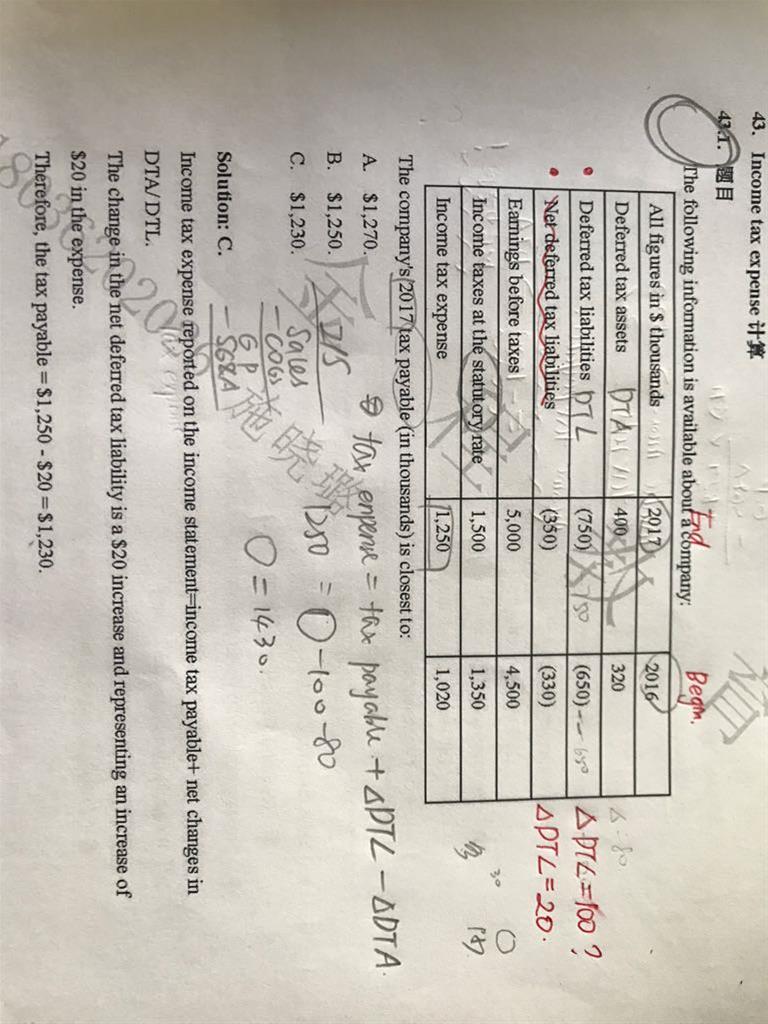 43. Income tax expense 计算
43.1. 题目
The following information is available about a company:
End Begin.
All figures in $ thousands 2017 2016
Deferred tax assets DTA 400 320 Δ = 80
Deferred tax liabilities DTL (750) 750 (650) 650 ΔDTL = 100 ?
Net deferred tax liabilities (350) (330) ΔDTL = 20.
Earnings before taxes 5,000 4,500
Income taxes at the statutory rate 1,500 1,350
Income tax expense 1,250 1,020
The company's 2017 tax payable (in thousands) is closest to:
A. $1,270.
B. $1,250.
C. $1,230.
tax expense = tax payable + ΔDTL - ΔDTA.
1250 = O - 100 - 80
O = 1430.
I/S
Sales
- COGS
GP
- SG&A
施晓璐
Solution: C.
Income tax expense reported on the income statement=income tax payable+ net changes in
DTA/ DTL.
The change in the net deferred tax liability is a $20 increase and representing an increase of
$20 in the expense.
Therefore, the tax payable = $1,250 - $20 = $1,230.